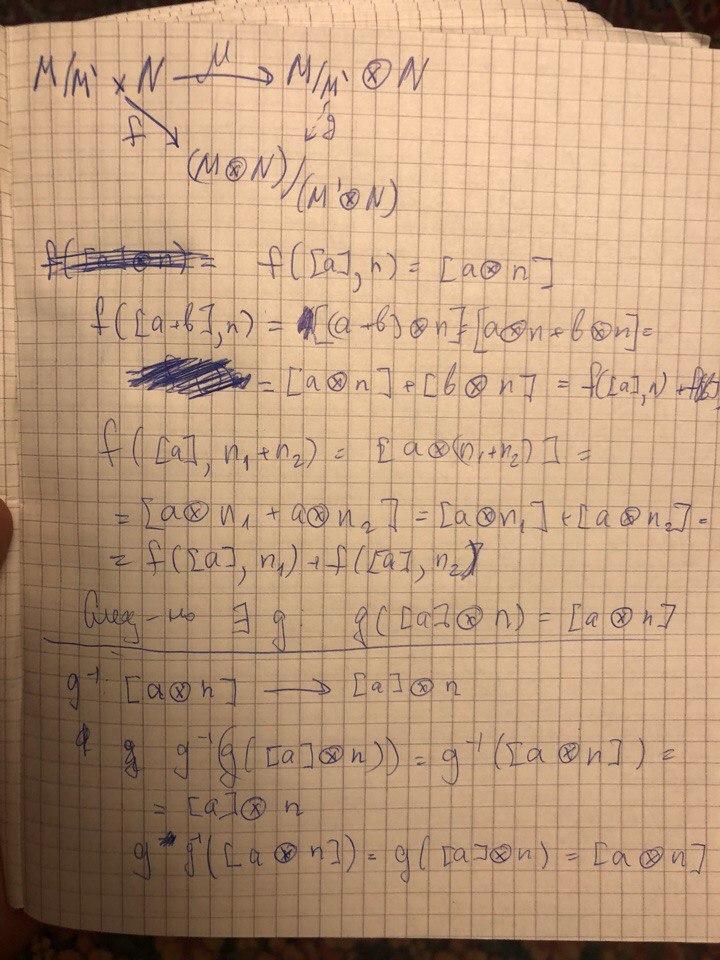 M/M' × N μ→ M/M' ⊗ N
f g
(M⊗N)/(M'⊗N)
f([a], n) = [a⊗n]
f([a+b], n) = [(a+b)⊗n] = [a⊗n + b⊗n] =
= [a⊗n] + [b⊗n] = f([a], N) +
f([a], n₁+n₂) = [a⊗(n₁+n₂)] =
= [a⊗n₁ + a⊗n₂] = [a⊗n₁] + [a⊗n₂] =
= f([a], n₁) + f([a], n₂)
След-но ∃ g: g([a]⊗n) = [a⊗n]
g⁻¹ [a⊗n] → [a]⊗n
g⁻¹(g([a]⊗n)) = g⁻¹([a⊗n]) =
= [a]⊗n
g g⁻¹([a⊗n]) = g([a]⊗n) = [a⊗n]